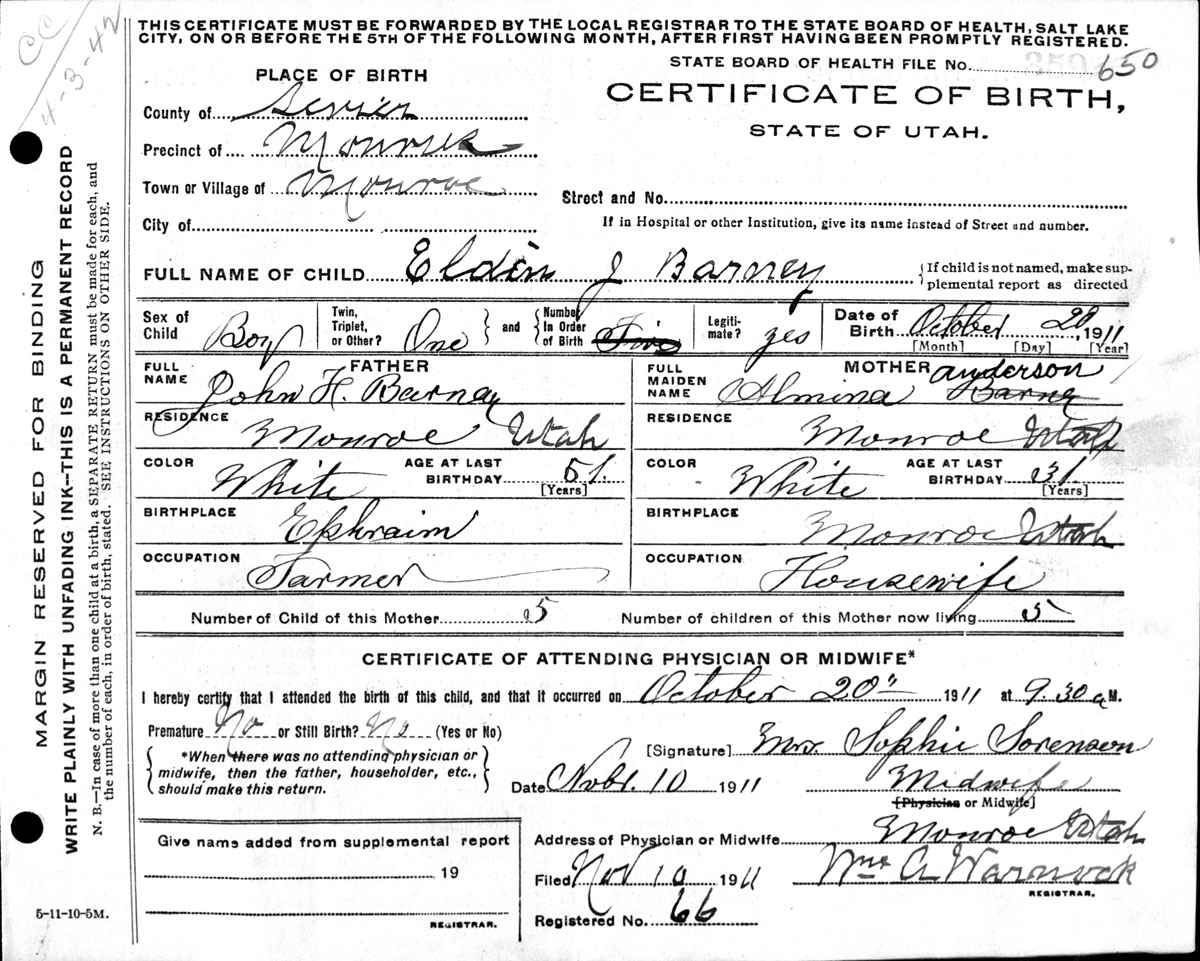 CC
4-3-42
THIS CERTIFICATE MUST BE FORWARDED BY THE LOCAL REGISTRAR TO THE STATE BOARD OF HEALTH, SALT LAKE
CITY, ON OR BEFORE THE 5TH OF THE FOLLOWING MONTH, AFTER FIRST HAVING BEEN PROMPTLY REGISTERED.
STATE BOARD OF HEALTH FILE No. 650
PLACE OF BIRTH
CERTIFICATE OF BIRTH,
STATE OF UTAH.
County of Sevier
Precinct of Monroe
Town or Village of Monroe
Street and No.
City of
If in Hospital or other Institution, give its name instead of Street and number.
FULL NAME OF CHILD Elden J Barney
{If child is not named, make sup-
plemental report as directed
Sex of Child Boy
Twin, Triplet, or Other? One
and
Number In Order of Birth Five
Legiti-mate? yes
Date of Birth October 20, 1911
[Month] [Day] [Year]
FATHER
FULL NAME John H. Barney
MOTHER
FULL MAIDEN NAME Almina Barney Anderson
RESIDENCE Monroe Utah
RESIDENCE Monroe Utah
COLOR White AGE AT LAST BIRTHDAY 51. [Years]
COLOR White AGE AT LAST BIRTHDAY 31 [Years]
BIRTHPLACE Ephraim
BIRTHPLACE Monroe Utah
OCCUPATION Farmer
OCCUPATION Housewife
Number of Child of this Mother 5
Number of children of this Mother now living 5
CERTIFICATE OF ATTENDING PHYSICIAN OR MIDWIFE*
I hereby certify that I attended the birth of this child, and that it occurred on October 20" 1911 at 9.30 a M.
Premature No or Still Birth? No (Yes or No)
*When there was no attending physician or
midwife, then the father, householder, etc.,
should make this return.
[Signature] Mrs Sophie Sorenson
Date Nobr. 10 1911
Midwife
[Physician or Midwife]
Give name added from supplemental report
19
REGISTRAR.
Address of Physician or Midwife Monroe Utah
Filed Nov 10 1911 Wm A Warnock
REGISTRAR.
Registered No. 66
5-11-10-5M.
MARGIN RESERVED FOR BINDING
WRITE PLAINLY WITH UNFADING INK--THIS IS A PERMANENT RECORD
N. B.—In case of more than one child at a birth, a SEPARATE RETURN must be made for each, and
the number of each, in order of birth, stated. SEE INSTRUCTIONS ON OTHER SIDE.